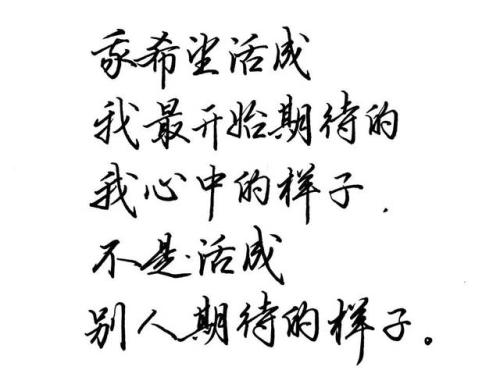 我希望活成
我最开始期待的
我心中的样子.
不是活成
别人期待的样子。